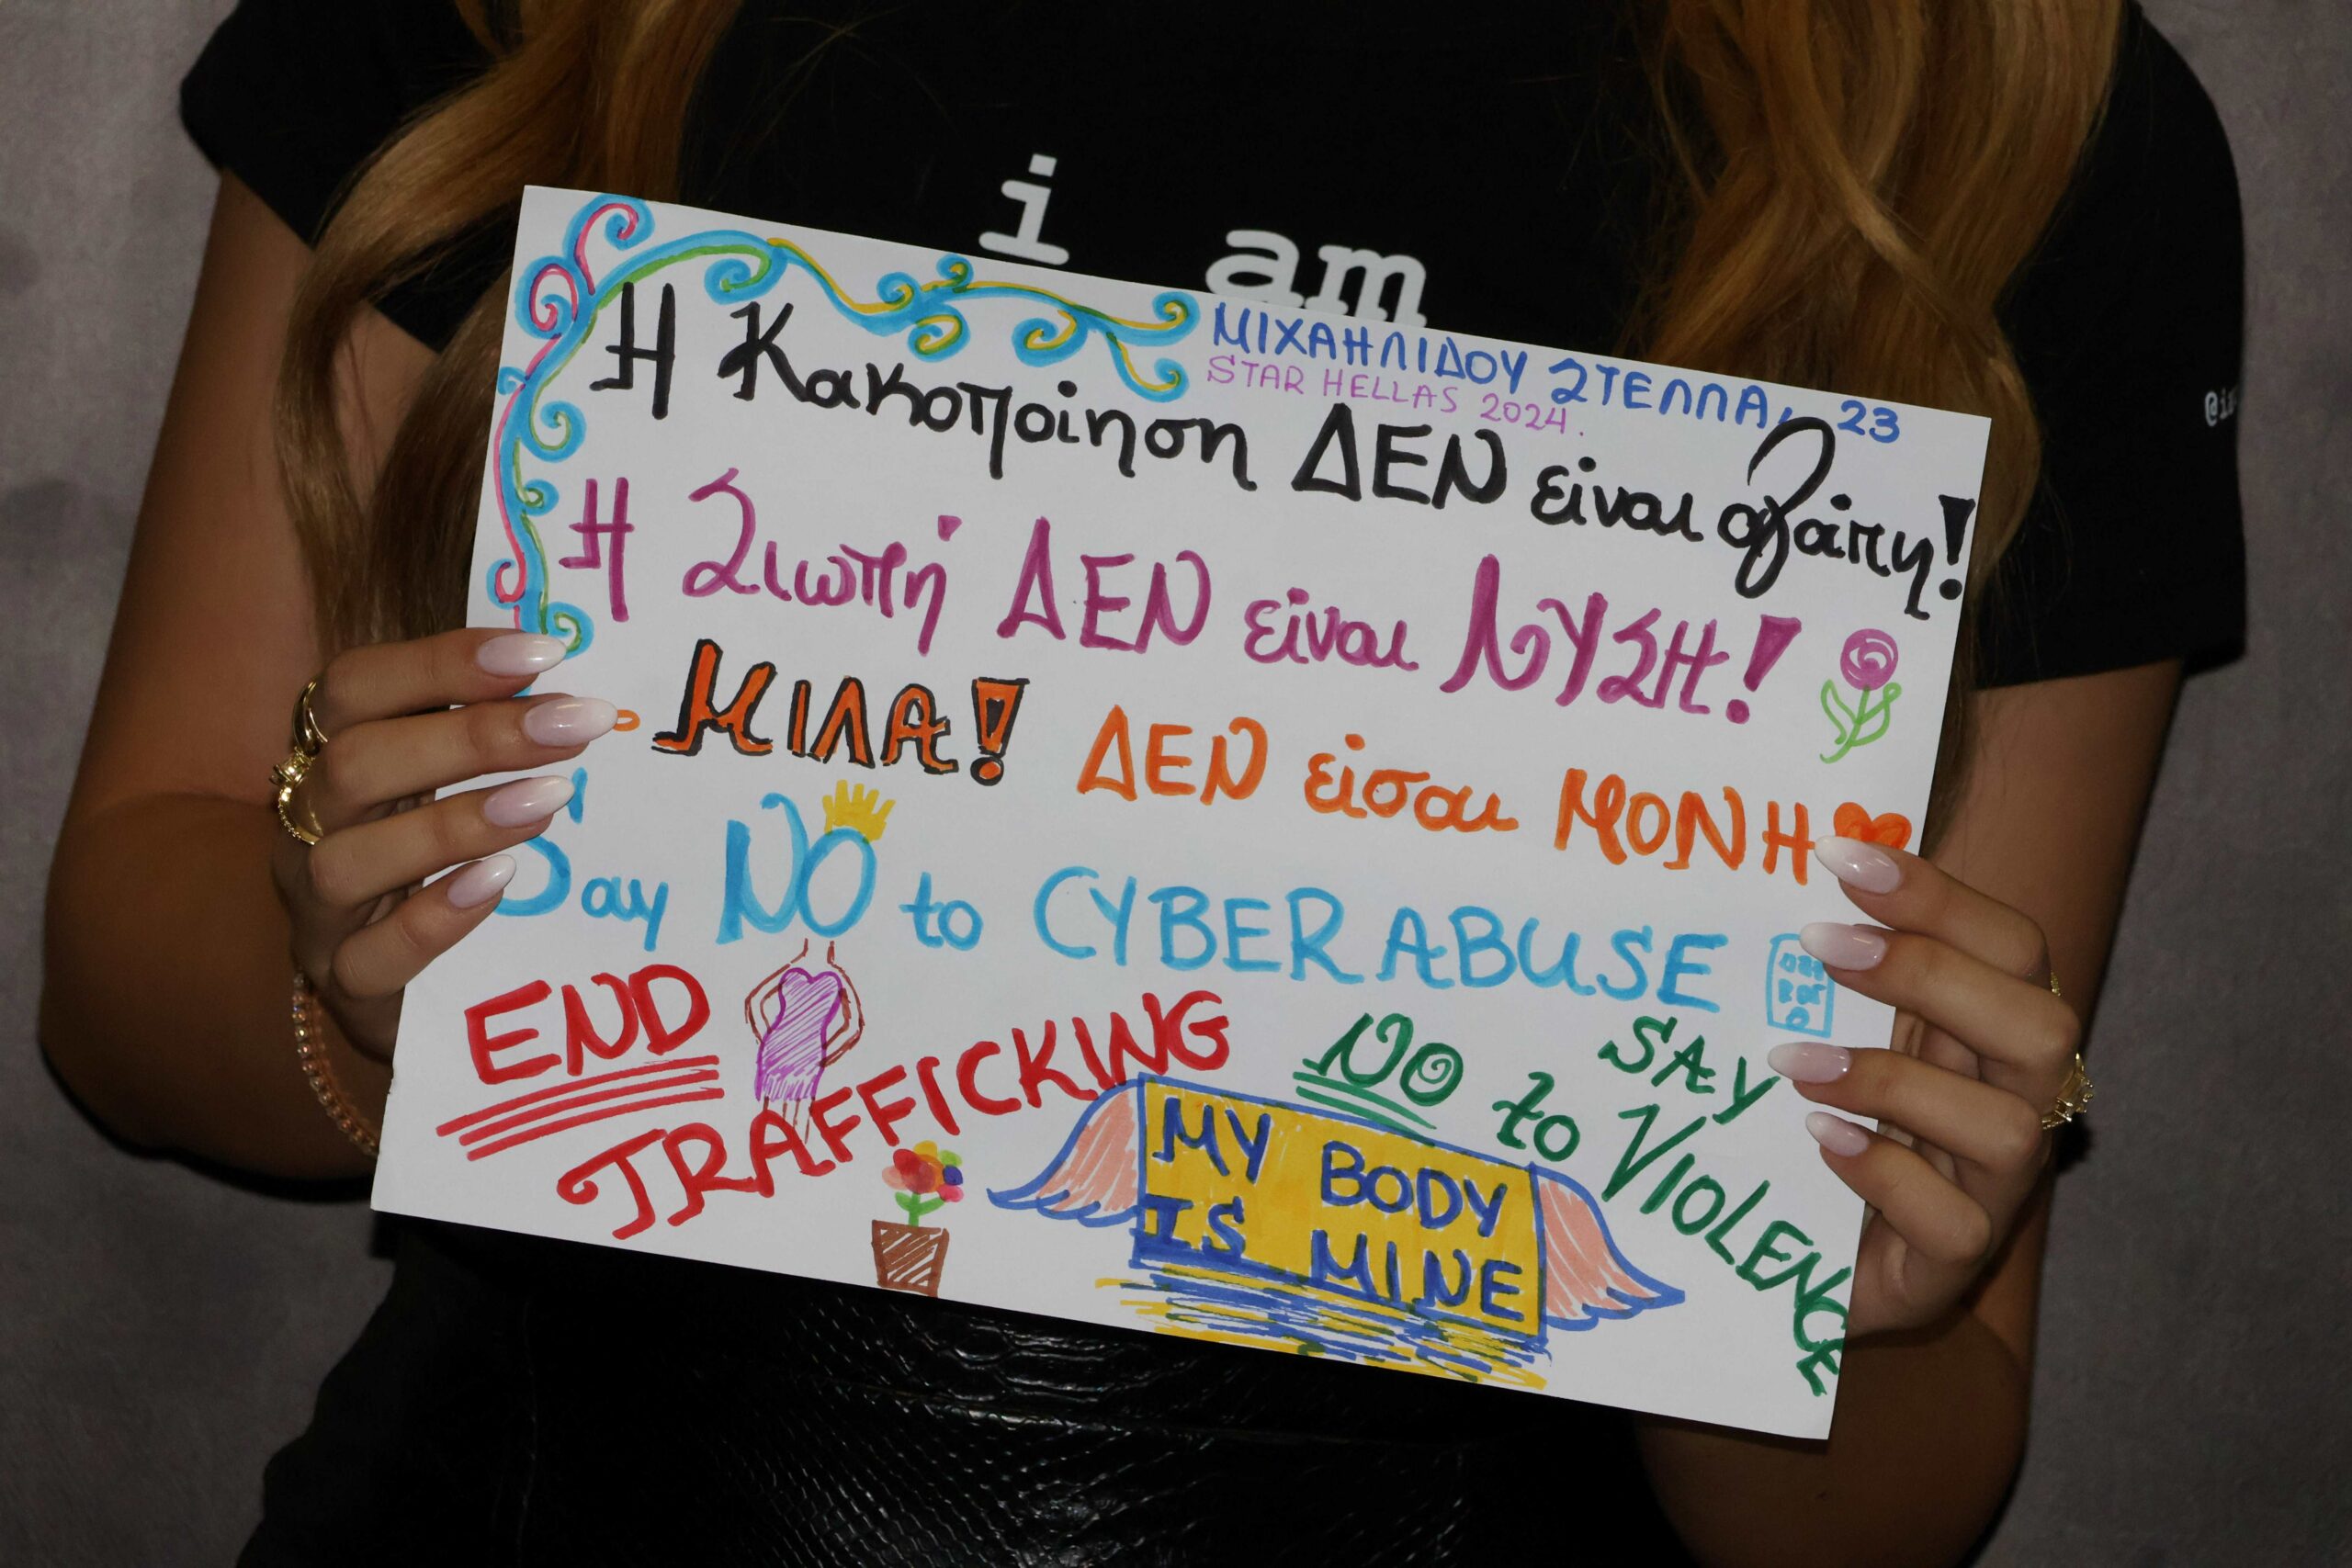 i am
ΜΙΧΑΗΛΙΔΟΥ ΣΤΕΛΛΑ, 23
STAR HELLAS 2024.
Η Κακοποίηση ΔΕΝ είναι αγάπη!
Η Σιωπή ΔΕΝ είναι ΛΥΣΗ!
- ΜΙΛΑ! ΔΕΝ είσαι ΜΟΝΗ
Say NO to CYBER ABUSE
END TRAFFICKING
SAY NO to VIOLENCE
MY BODY
IS MINE